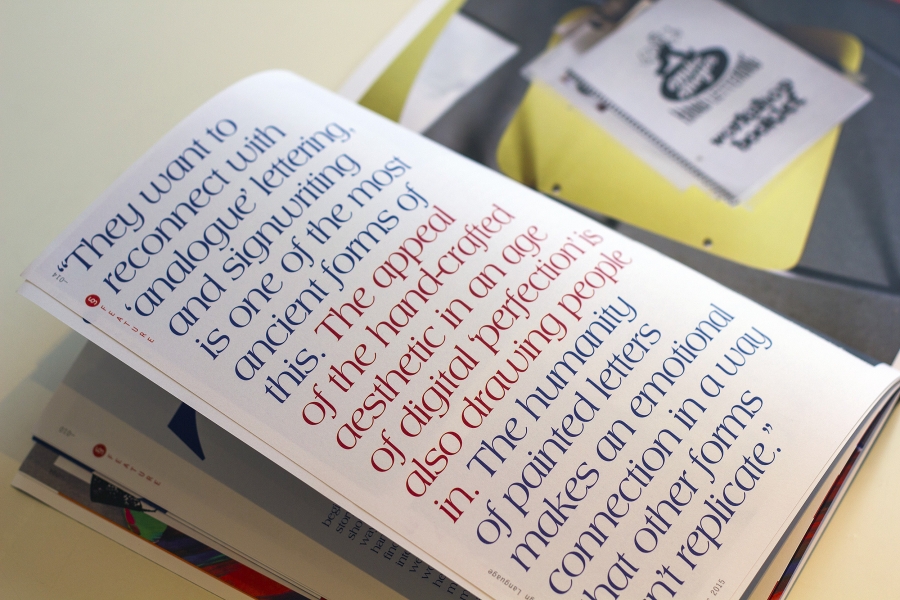 “They want to
reconnect with
‘analogue’ lettering,
and signwriting
is one of the most
ancient forms of
this. The appeal
of the hand-crafted
aesthetic in an age
of digital ‘perfection’ is
also drawing people
in. The humanity
of painted letters
makes an emotional
connection in a way
hat other forms
n’t replicate.”
FEATURE
Language
2015
FEATURE
workshop
booklet